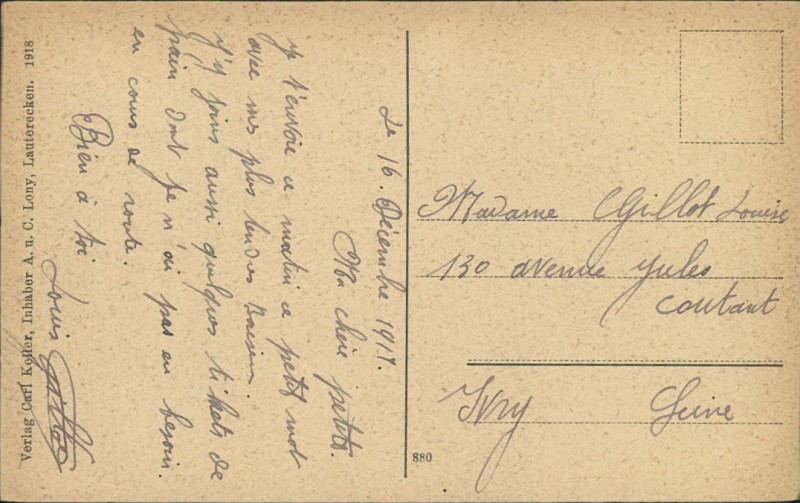 Le 16. Décembre 1918.
Ma chère petite.
je t'envoie ce matin ce petit mot
avec mes plus tendres Baisers.
j'y joins aussi quelques tickets de
pain dont je n'ai pas eu besoin.
en cours de route.
Bien à toi
Louis Gillot
Verlag Carl Keller, Inhaber A. u. C. Lony, Lauterecken. 1918
880
Madame Gillot Louise
130 avenue jules
coutant
Ivry Seine